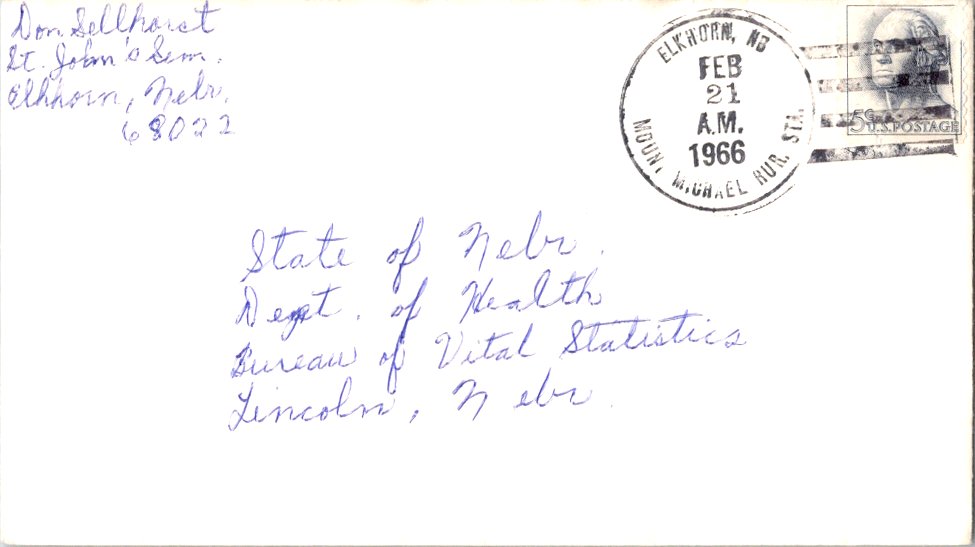 Don Sellhorst
St. John's Sem.
Elkhorn, Nebr.
68022
ELKHORN, NB
FEB
21
A.M.
1966
MOUNT MICHAEL RUR. STA.
5¢ U.S. POSTAGE
State of Nebr.
Dept. of Health
Bureau of Vital Statistics
Lincoln, Nebr.